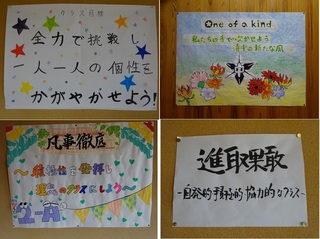 クラス目標
全力で挑戦し、
一人一人の個性を
かがやかせよう!
One of a kind
私たちの手で咲かせよう
青学の新たな風
凡事徹底
〜積極性を発揮し
理想のクラスにしよう〜
2-A
進取果敢
-自発的・積極的・協力的なクラス-